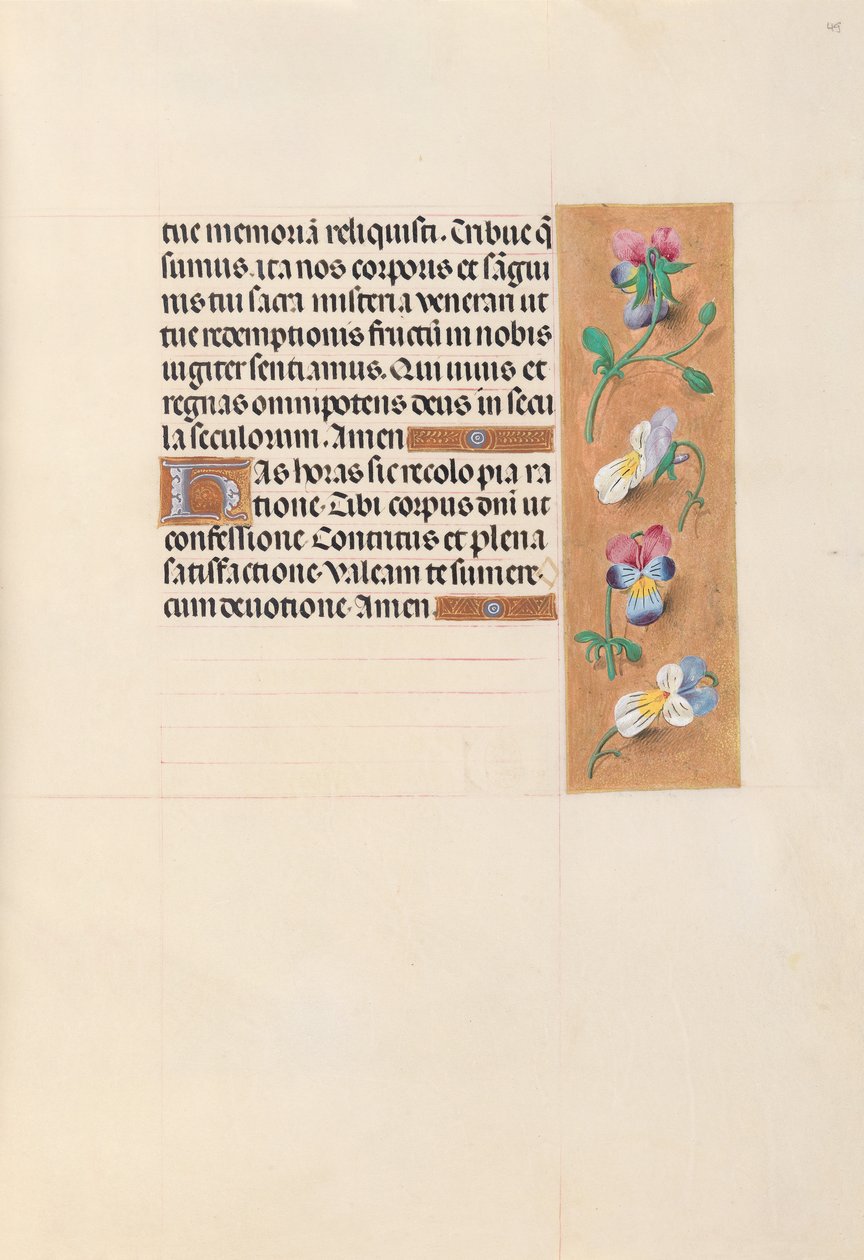 49
tue memoriā reliquisti. Tribue q̄
sumus. ita nos corporis et sāgui
nis tui sacra misteria venerari ut
tue redemptionis fructū in nobis
iugiter sentiamus. Qui vivis et
regnas omnipotens deus in secu
la seculorum. Amen
Has horas sic recolo pia ra
tione. Tibi corpus dn̄i ut
confessione. Contritus et plena
satisfactione. Valeam te sumere.
cum devotione. Amen.